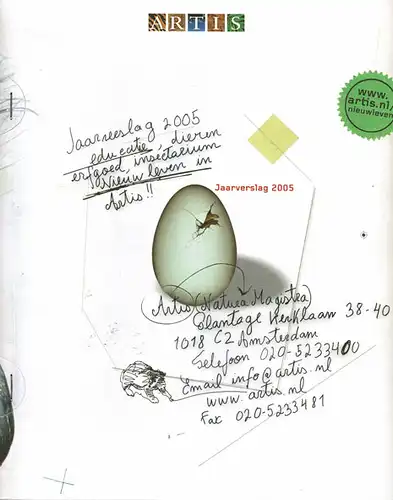 ARTIS
www.
artis.nl/
nieuwleven
Jaarverslag 2005
educatie, dieren
erfgoed, insectarium
Nieuw leven in
Artis!!
Jaarverslag 2005
Artis (Natura Magistra)
Plantage Kerklaan 38-40
1018 CZ Amsterdam
Telefoon 020-5233400
Email info@artis.nl
www.artis.nl
Fax 020-5233481